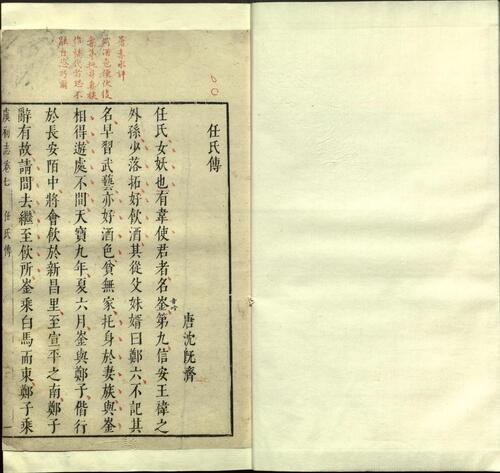 任氏傳
唐沈旣濟
任氏女妖也有韋使君者名崟第九信安王禕之
外孫少落拓好飲酒其從父妹婿曰鄭六不記其
名早習武藝亦好酒色貧無家托身於妻族與崟
相得遊處不間天寶九年夏六月崟與鄭子偕行
於長安陌中將會飲於新昌里至宣平之南鄭子
辭有故請間去繼至飲所崟乘白馬而東鄭子乘
虞初志卷七 任氏傳 一